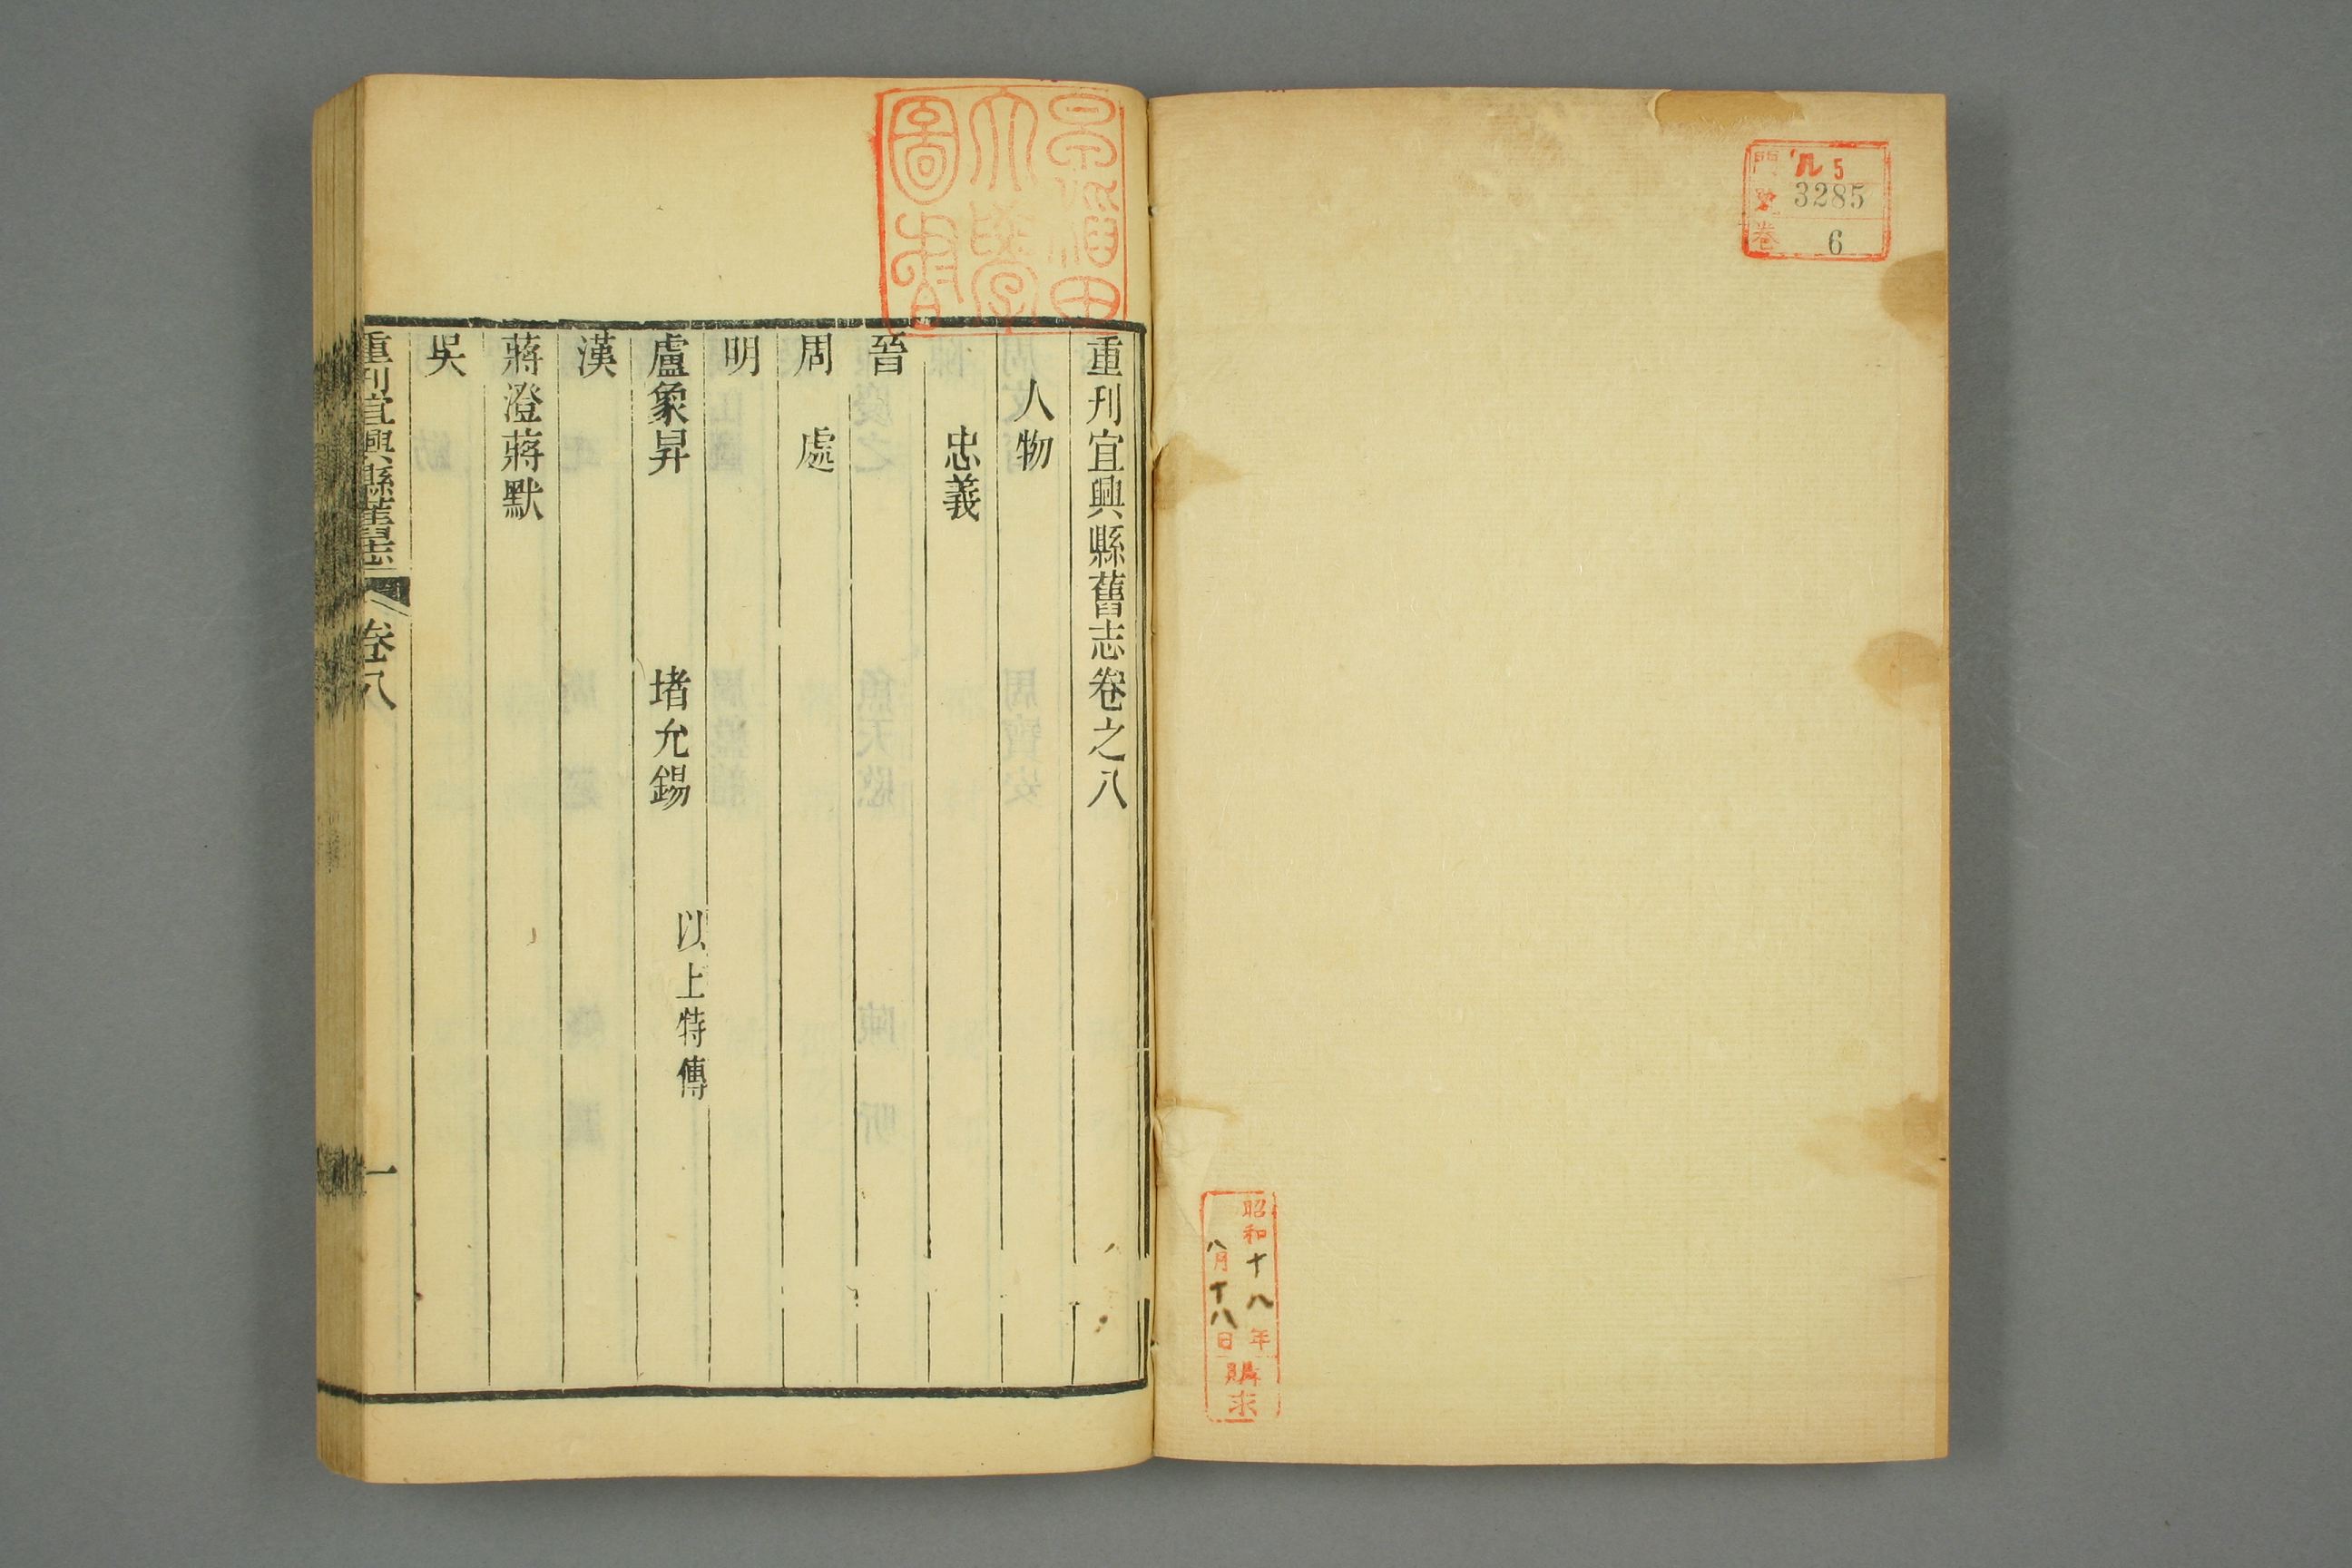 門 ル 5
號 3285
卷 6
昭和十八年
八月十八日
購求
早稲田
大學
圖書
重刊宜興縣舊志卷之八
人物
忠義
晉
周處
明
盧象昇 堵允錫 以上特傳
漢
蔣澄蔣默
吳
重刊宜興縣舊志 卷八 一